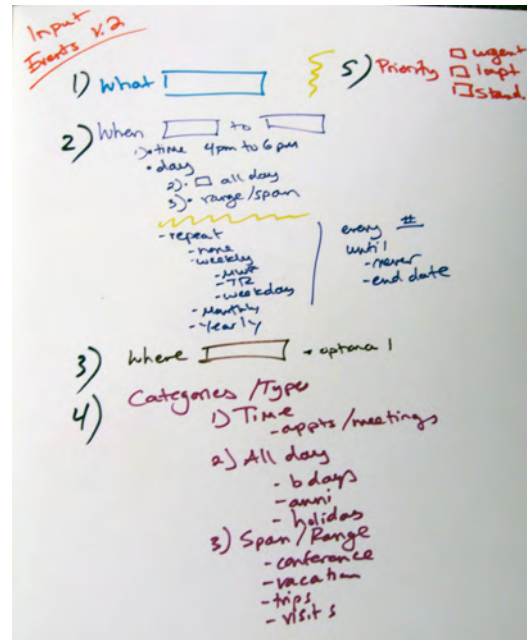 Input
Events v.2
1) What
2) When to
1) • time 4pm to 6pm
• day
2) • all day
3) • range/span
- repeat
- none
- weekly
- MWF
- TR
- weekday
- Monthly
- Yearly
every #
until
- never
- end date
3) Where optional
4) Categories/Types
1) Time
- appts/meetings
2) All day
- bdays
- anni
- holidas
3) Span/Range
- conference
- vacation
- trips
- visits
5) Priority urgent
Impt
Stand